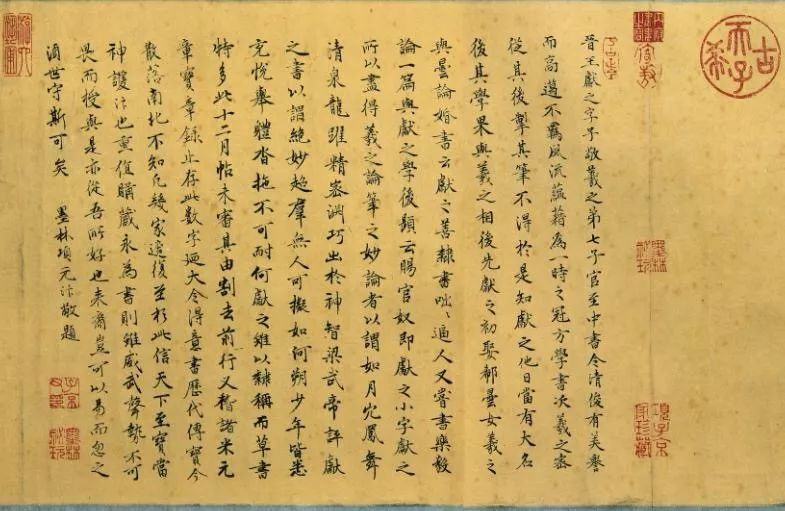 古希天子
晉王獻之字子敬羲之第七子官至中書令清俊有美譽
而高邁不羈風流蘊藉為一時之冠方學書次羲之密
從其後掣其筆不得於是知獻之他日當有大名
後其學果與羲之相後先獻之初娶郗曇女羲之
與曇論婚書云獻之善隸書咄咄逼人又嘗書樂毅
論一篇與獻之學後題云賜官奴即獻之小字獻之
所以盡得羲之論筆之妙論者以謂如丹穴鳳舞
清泉龍躍精密淵巧出於神智梁武帝評獻
之書以謂絕妙超羣無人可擬如河朔少年皆悉
充悅舉體沓拖不可耐何獻之雖以隸稱而草書
特多此十二月帖未審其由割去前行又稽諸米元
章寶章錄止存此數字迺大令得意書歷代傳寶今
散落南北不知凡幾家復至於此信天下至寶當
神護也重值購藏永為書則雖威武聲勢不可
畏而授與是亦從吾所好也來裔豈可以易而忽之
須世守斯可矣 墨林項元汴敬題
墨林祕玩
項子京家珍藏
墨林祕玩